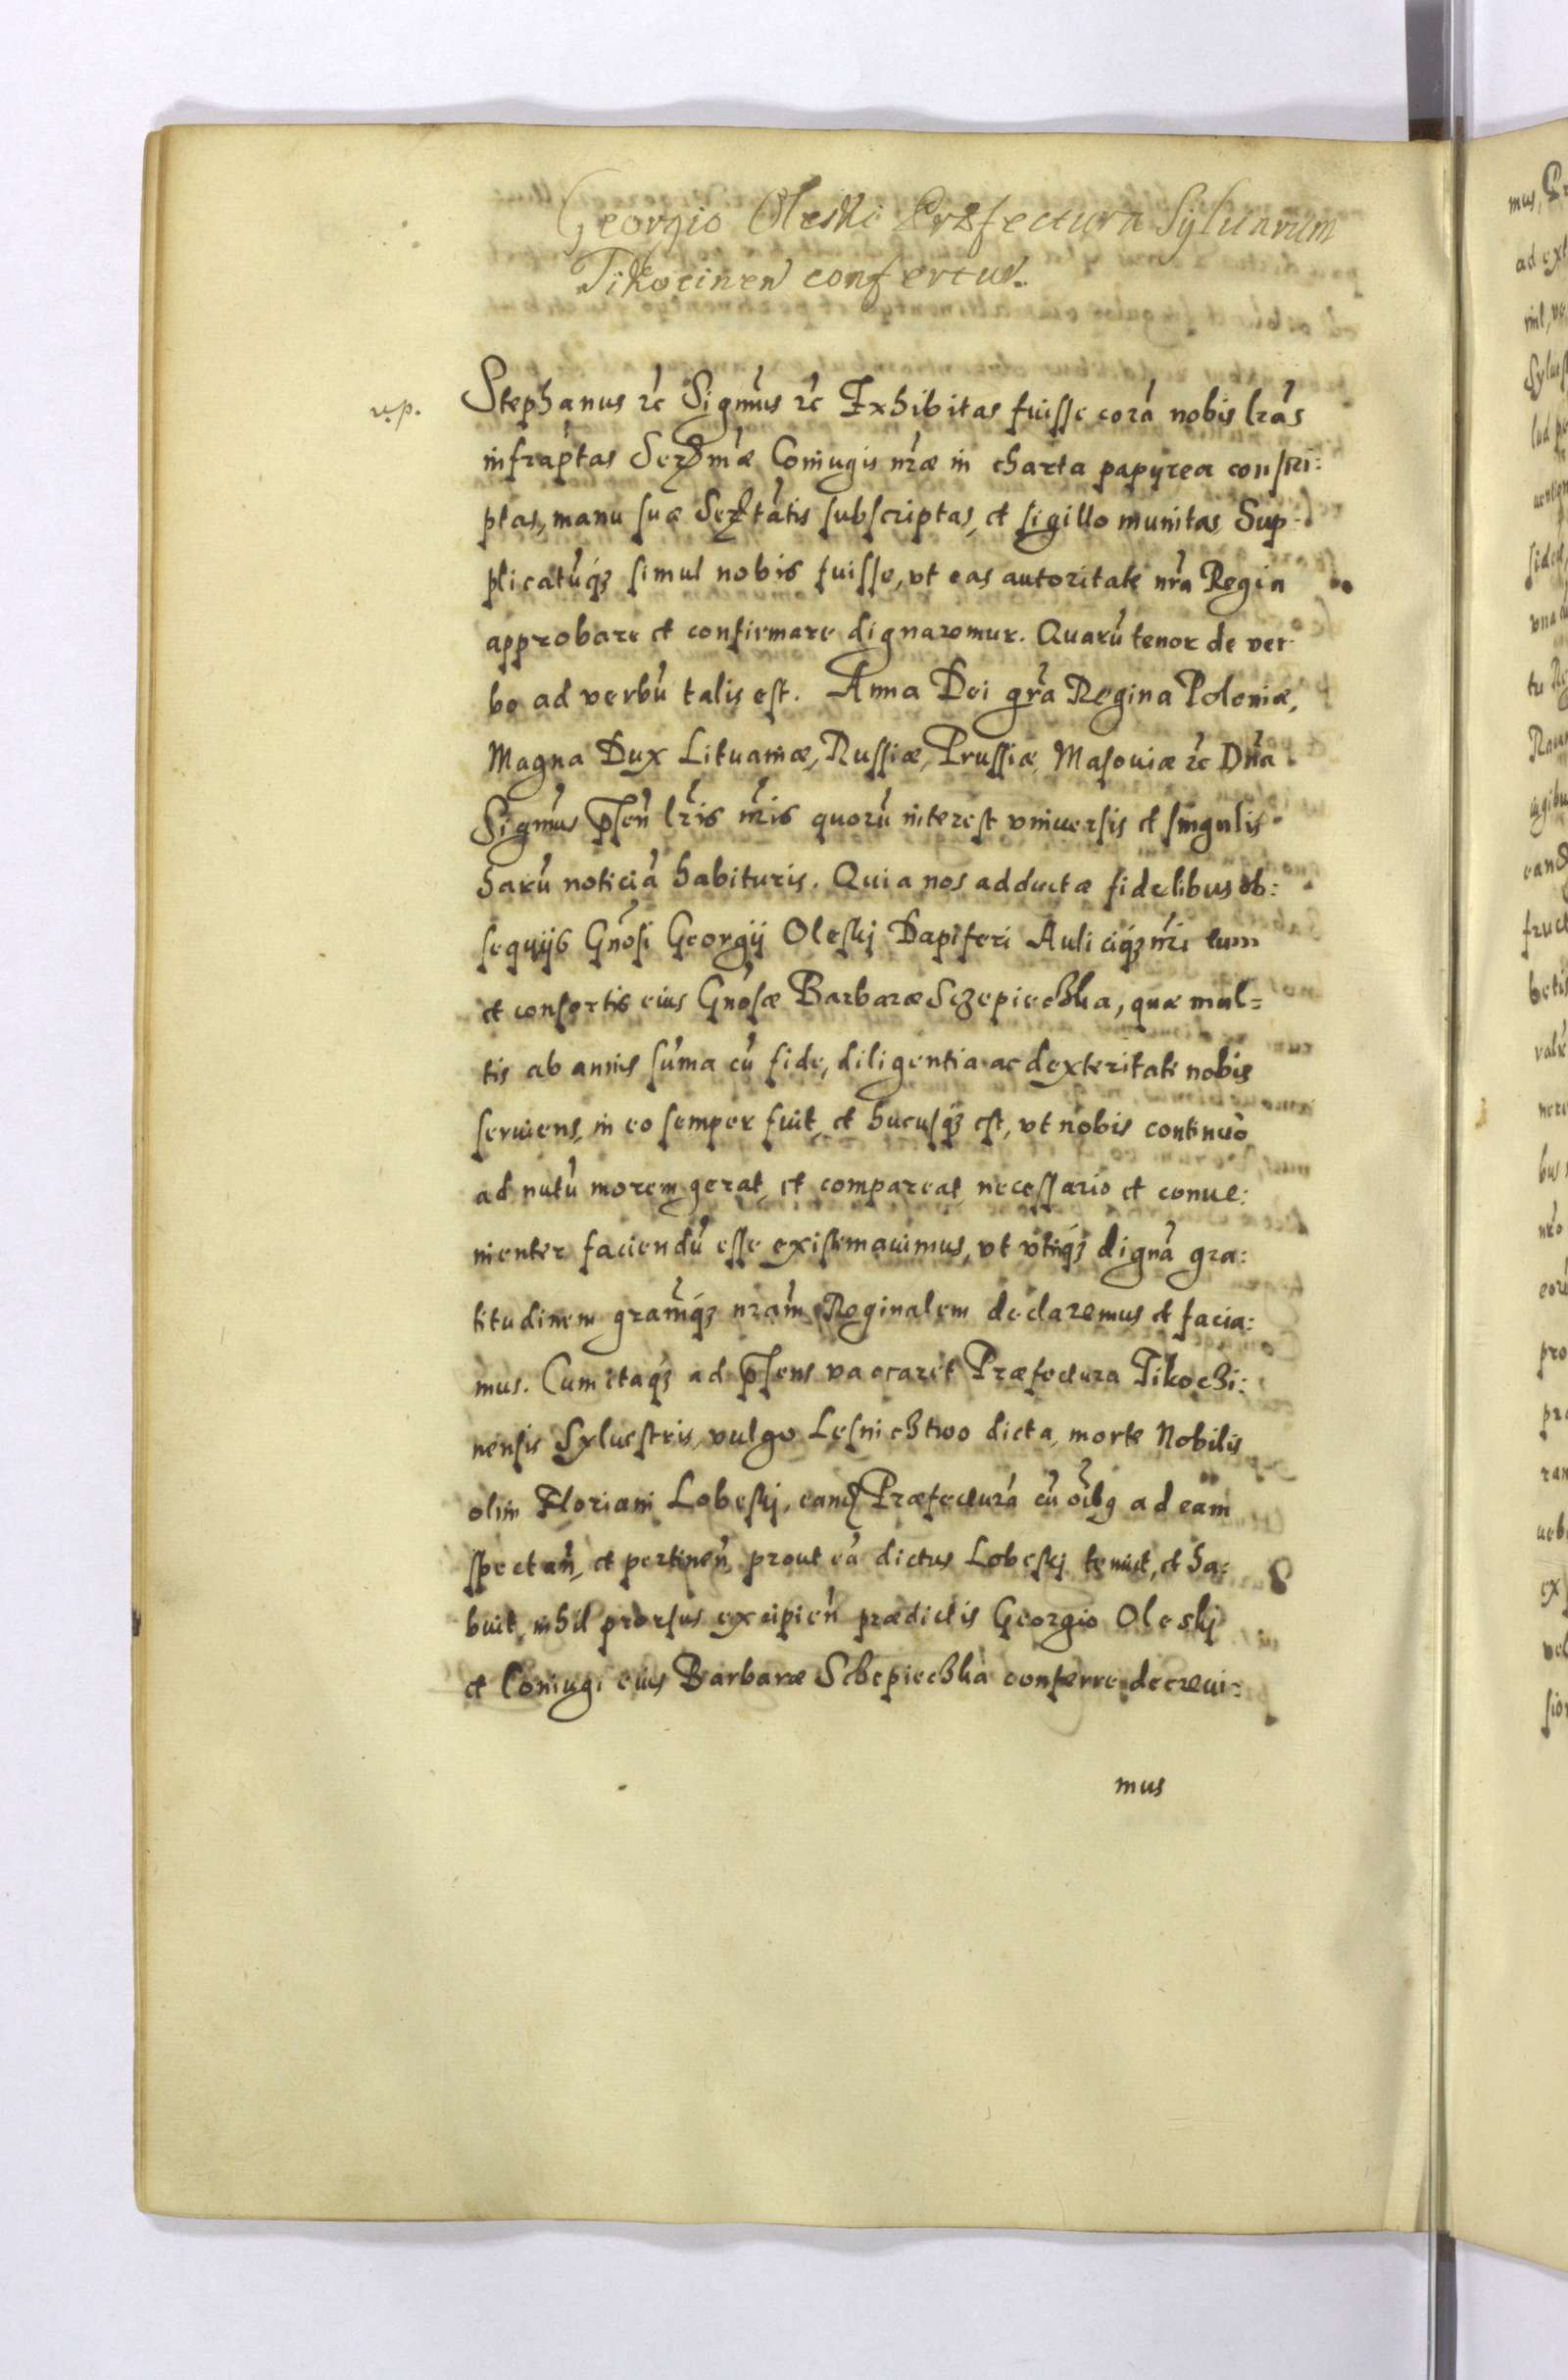 Georgio Oleski Præfectura Syluarum
Tikocinen confertur.
r.p.
Stephanus ꝛc Sigm̃us ꝛc Exhibitas fuisse corá nobis lrás
infraptas Serꝰmæ Coniugis nrǽ in charta papyrea conscri:
ptas, manu suæ Sertátis subscriptas, et sigillo munitas, Sup-
plicatúq́ꝫ simul nobis fuisse, vt eas autoritate nrá Regia
approbare et confirmare dignaremur. Quarú tenor de ver
bo ad verbú talis est. Anna Dei grá Regina Poloniæ,
Magna Dux Lituaniæ, Russiæ, Prussiæ, Masouiæ ꝛc Dná
Sigm̃us p̃sen̄ lr̃is nr̃is quorú interest vniuersis et singulis
harú noticiá habituris. Quia nos adductæ fidelibus ob:
sequijs Gnósi Georgij Oleskj Dapiferi Auliciq́ꝫ nr̃i tum
et consortis eius Gnósæ Barbaræ Sczepiechka, quæ mul=
tis ab annis súma cú fide, diligentia ac dexteritate nobis
seruiens, in eo semper fuit, et hucusq́ꝫ est, vt nobis continuò
ad nutú morem gerat, et compareat, necessario et conue:
nienter faciendú esse existimauimus, vt vtiq́ꝫ digná gra:
titudinem gram̃q́ꝫ nram̃ Reginalem declaremus et facia:
mus. Cum itaq́ꝫ ad p̃sens vacaret Præfectura Tikochi:
nensis Syluestris, vulgo Lesnichtwo dicta, morte Nobilis
olim Floriani Lobeskj, eand Præfecturá cú oĩbꝫ ad eam
spectan̄, et pertinen̄ prout eá dictus Lobeskj tenuit, et ha:
buit, nihil prorsus excipien̄ prædictis Georgio Oleskj
et Coniugi eius Barbaræ Schepiechka conferre decreui:
mus